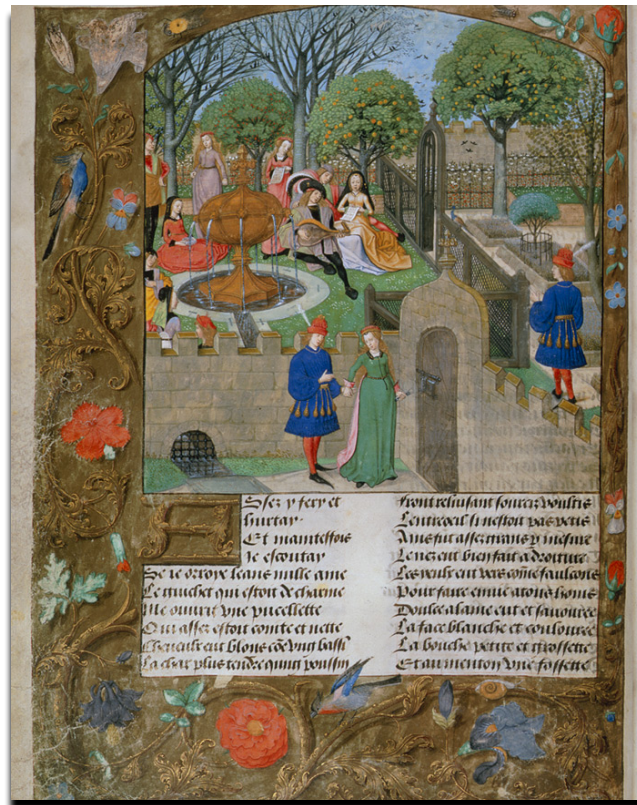 Assez y fery et
hurtay
Et maintesfois
Je escoutay
Se ie orroye leans nulle ame
Le guichet qui estoit de charme
Me ouvrit vne pucellette
Qui assez estoit cointe et nette
Cheueulx eut blons cõe vng bassi
La char plus tendre qung poussin
Front reluisant sourcix voultis
Lentreoeil si nestoit pas petis
Ains fut assez grans p mesure
Le nez eut bien fait a droiture
Les yeulx eut vers cõme faulcons
Pour faire enuie a tous homs
Doulce alaine eut et sauouree
La face blanche et coulouree
La bouche petite et grossette
Et au menton vne fossette